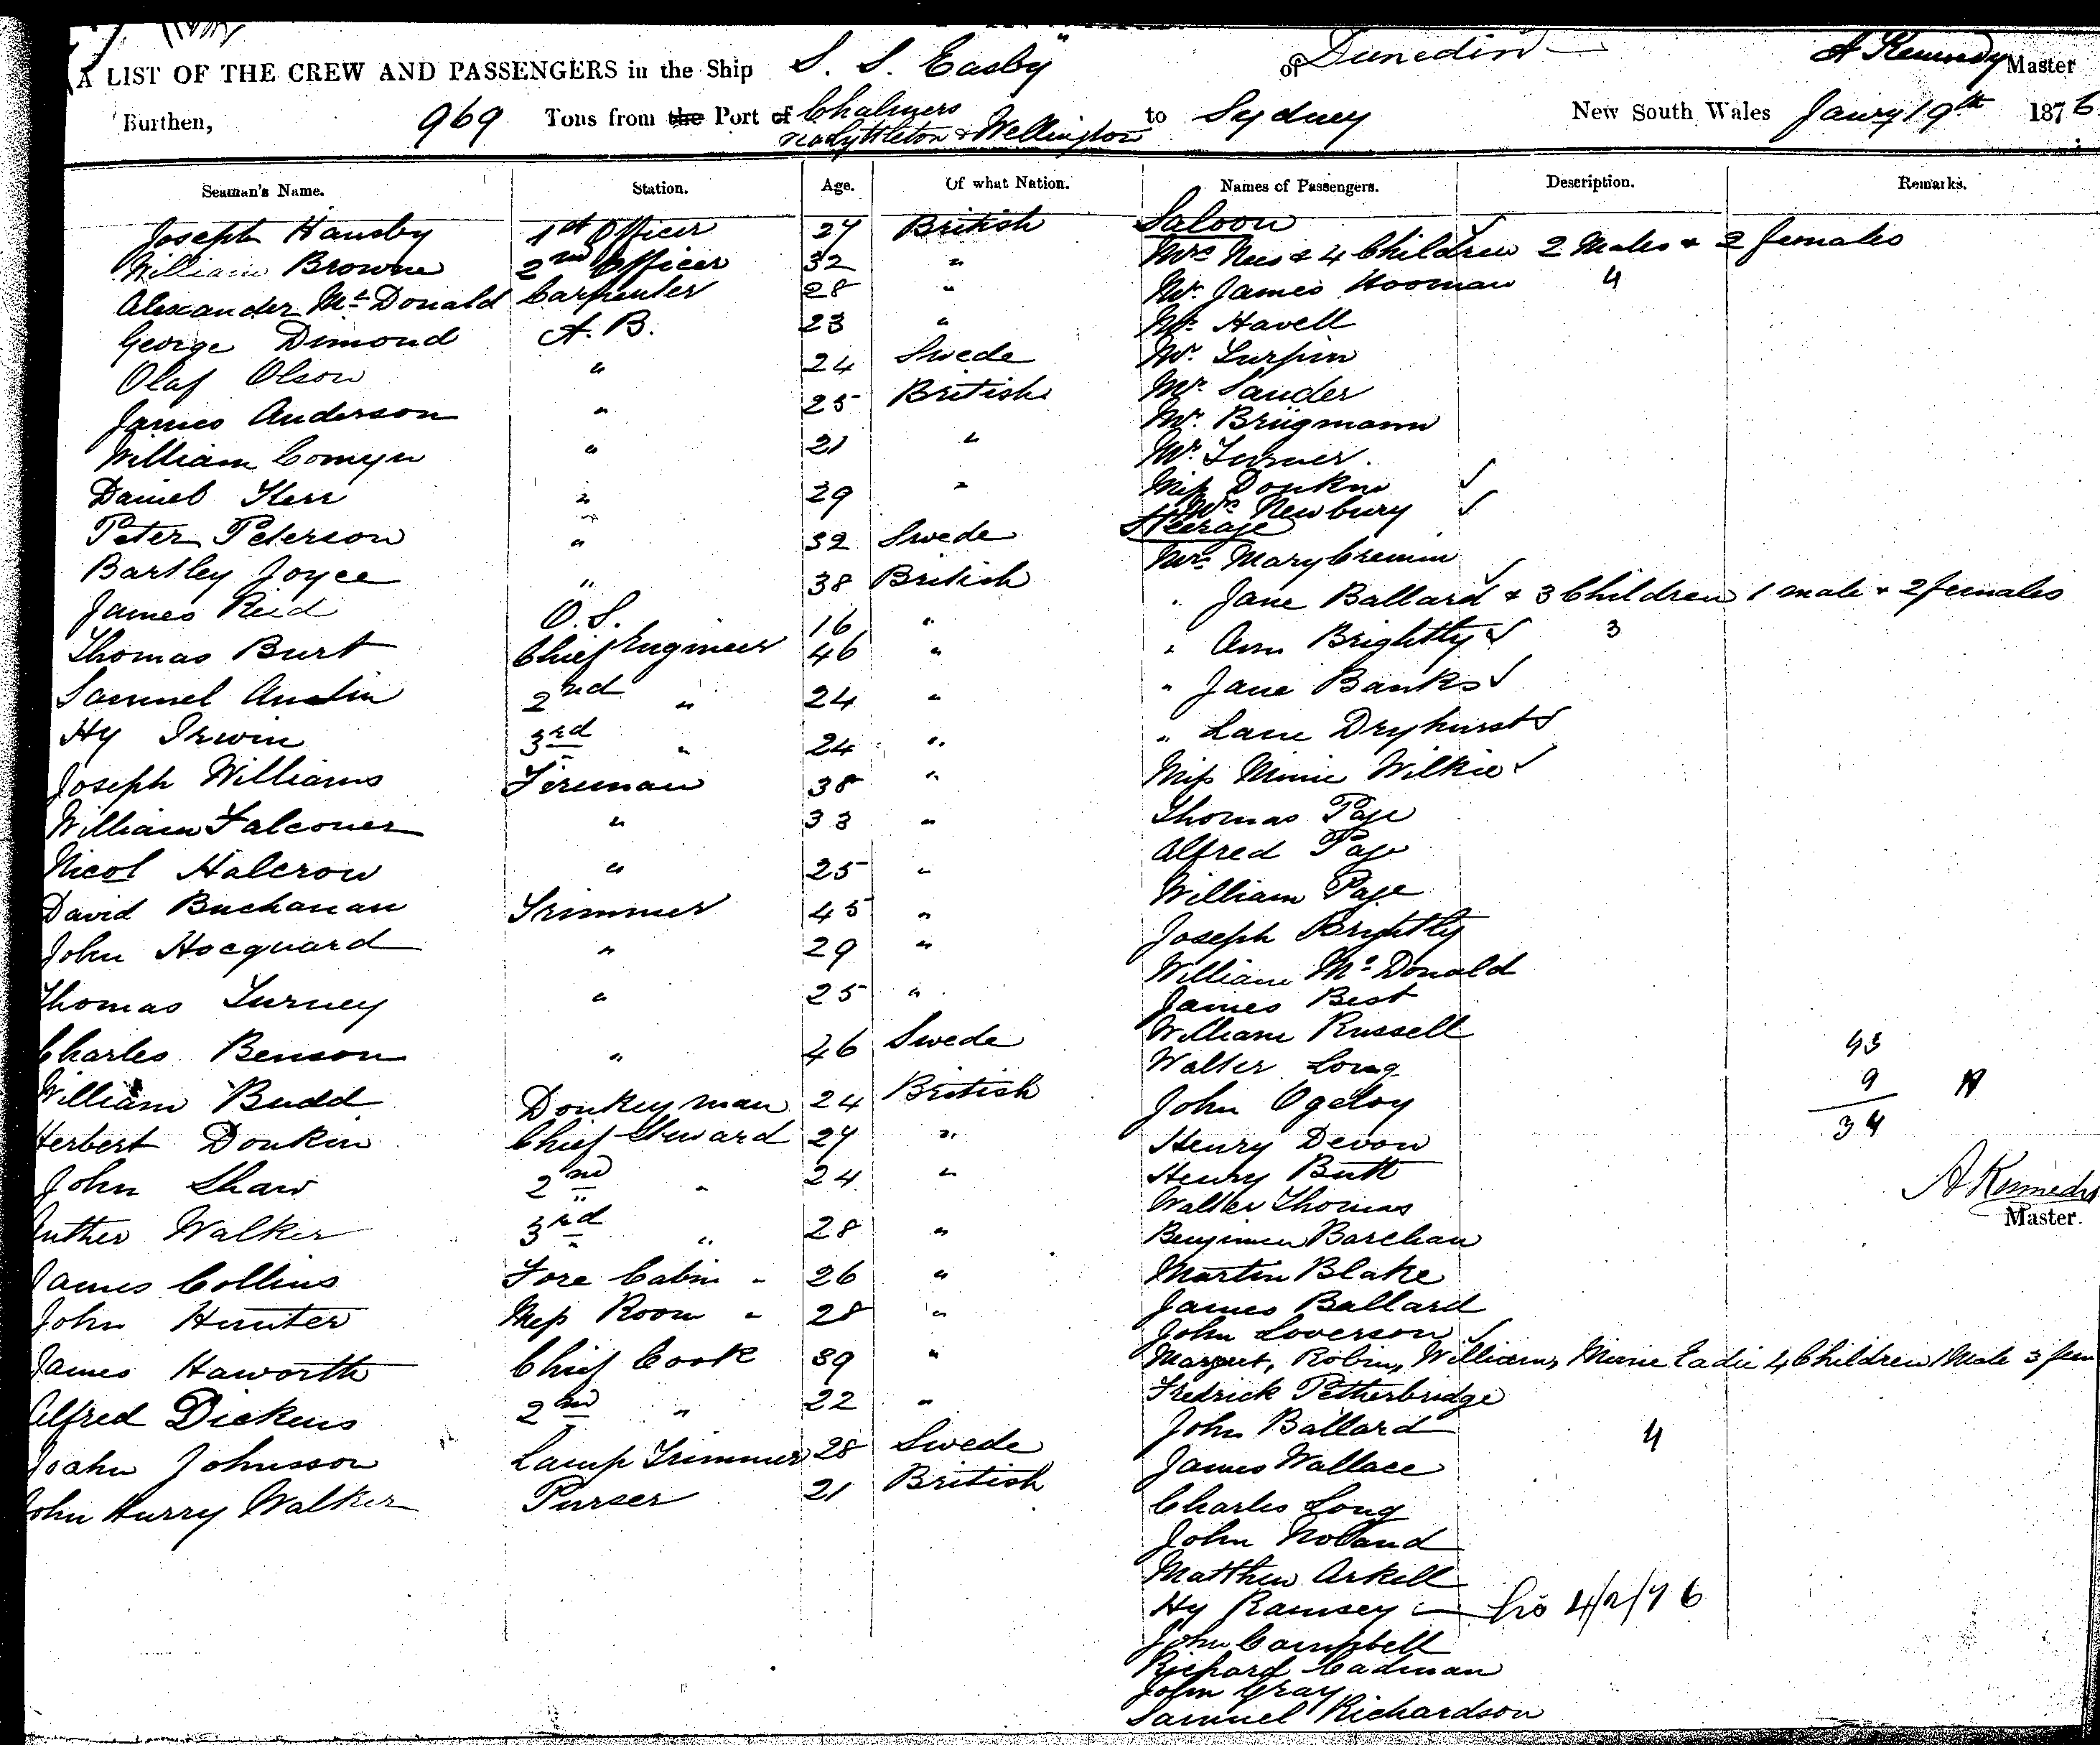 A LIST OF THE CREW AND PASSENGERS in the Ship S. S. Easby" of Dunedin A Kennedy Master
Burthen, 969 Tons from the Port of Chalmers to Sydney New South Wales Janry 19th 1876
Lyttleton & Wellington
Seaman's Name. Station. Age. Of what Nation. Names of Passengers. Description. Remarks.
Saloon
Joseph Hansby 1st Officer 27 British Mrs & 4 Children 2 Males & 2 females
William Browne 2nd Officer 32 " Mr. James Hooman 4
Alexander McDonald Carpenter 28 " Mr. Havell
George Dimond A. B. 23 " Mr. Turpin
Olaf Olson " 24 Swede Mr. Sander
James Anderson " 25 British Mr. Brügmann
William Comyn " 21 " Mr. Turner.
Daniel Kerr " 29 " Miss Donkin
Mrs Newbury
Steerage
Peter Peterson " 32 Swede Mrs Mary Cremin
Bartley Joyce " 38 British " Jane Ballard & 3 Children 1 male & 2 females
James Reid O. S. 16 " " Ann Brightly 3
Thomas Burt Chief Engineer 46 "
Samuel Austin 2nd " 24 " " Jane Banks
Hy Irwin 3rd " 24 " " Lane Dryhurst
Joseph Williams Fireman 38 " Miss Minie Wilkie
William Falconer " 33 " Thomas Page
Alfred Page
Nicol Halcrow " 25 " William Page
David Buchanan Trimmer 45 " Joseph Brightly
John Hocquard " 29 " William McDonald
Thomas Turney " 25 " James Best
William Russell
Charles Benson " 46 Swede Walter Long 43
William Budd Donkeyman 24 British John Ogeloy 9
Herbert Donkin Chief Steward 27 " Henry Devon 34
John Shaw 2nd " 24 " Henry Butt A Kennedy
Walter Thomas Master.
Luther Walker 3rd " 28 " Benjimen Barchan
James Collins Fore Cabin " 26 " Martin Blake
John Hunter Mess Room " 28 " James Ballard
John Loverson
James Haworth Chief Cook 39 " Margret, Robin, William, Minie Eadie 4 Children 1 Male 3 fem
Alfred Dickens 2nd " 22 " Fredrick Petherbridge
John Ballard 4
Joahn Johnsson Lamp Trimmer 28 Swede James Wallace
John Hurry Walker Purser 21 British Charles Long
John Noland
Matthew Arkell
Hy Ramsey 4/2/76
John Campbell
Richard Cadman
John Gray
Samuel Richardson